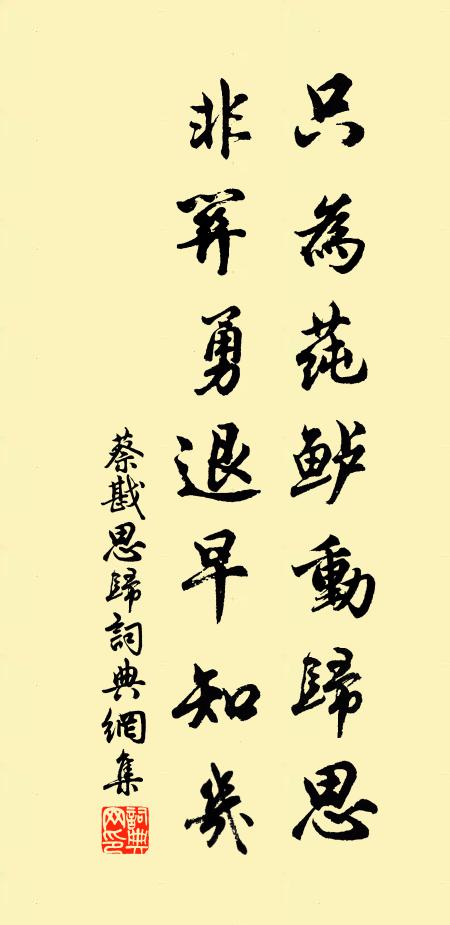 只為蒓鲈動歸思
非算勇退早知幾
蔡戡思歸詞典網集
詞典
网印